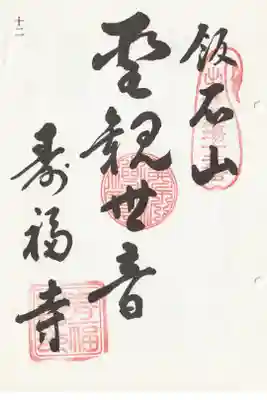 飯石山
聖観世音
寿福寺
十二